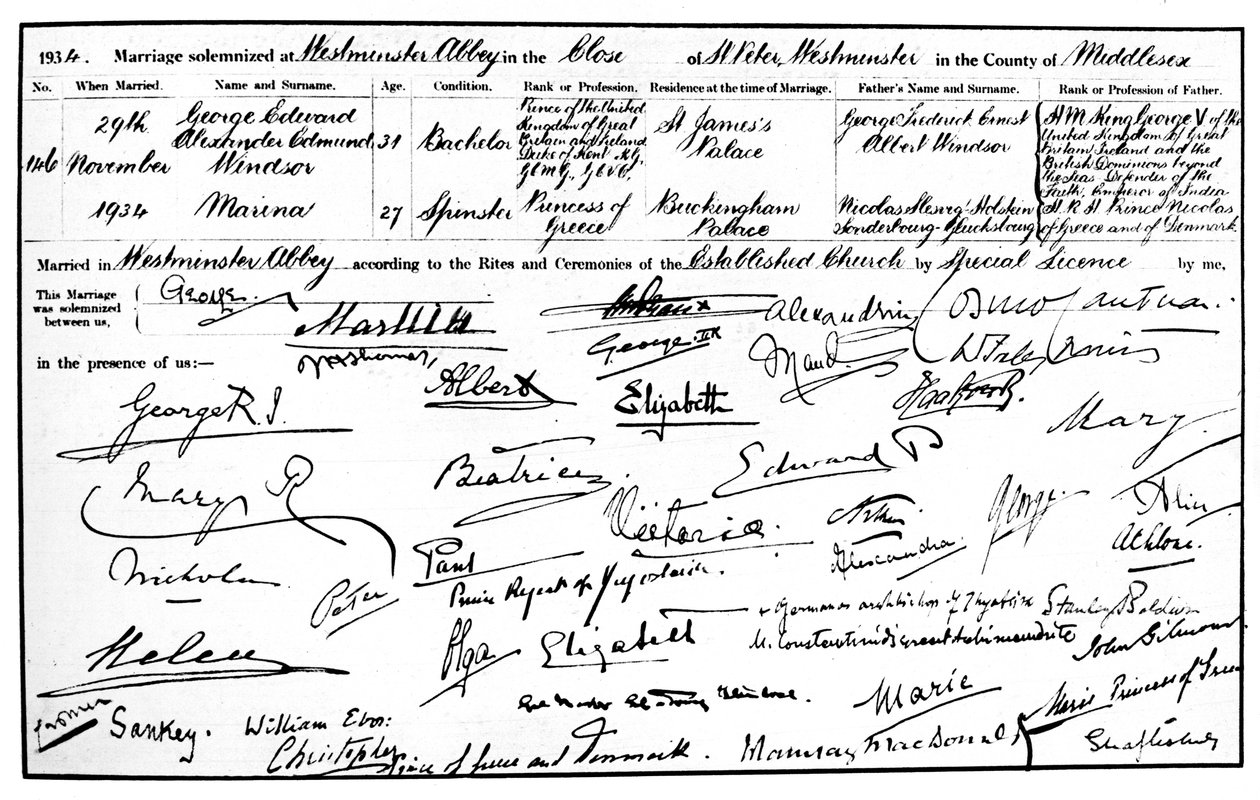 1934. Marriage solemnized at Westminster Abbey in the Close of St Peter, Westminster in the County of Middlesex
No. When Married. Name and Surname. Age. Condition. Rank or Profession. Residence at the time of Marriage. Father's Name and Surname. Rank or Profession of Father.
146
29th November 1934
George Edward
Alexander Edmund
Windsor
31
Bachelor
Prince of the United
Kingdom of Great
Britain and Ireland
Duke of Kent K.G.,
G.C.M.G., G.C.V.O.
St James's
Palace
George Frederick Ernest
Albert Windsor
H M King George V of the
United Kingdom of Great
Britain Ireland and the
British Dominions beyond
the Seas Defender of the
Faith, Emperor of India
Marina
27
Spinster
Princess of
Greece
Buckingham
Palace
Nicolas Slesvig-Holstein
Sonderbourg-Glucksbourg
H. R. H. Prince Nicolas
of Greece and of Denmark.
Married in Westminster Abbey according to the Rites and Ceremonies of the Established Church by Special Licence by me,
This Marriage
was solemnized
between us,
George.
Marina
Alexandrine
George. II R
Maud.
in the presence of us:—
George R. I.
Albert
Elizabeth
Haakon R.
Mary.
Mary R
Beatrice.
Edward P
Victoria.
Arthur
George
Alice
Athlone.
Nicholas
Peter
Paul
Prince Regent of Yugoslavia.
Alexandra.
+ Germanos archbishop of Thyatira
Stanley Baldwin
Helen
Olga
Elizabeth
John Gilmour
Marie
Marie Princess of Greece
Sankey.
William Ebor:
Christopher
Prince of Greece and Denmark.
Ramsay MacDonald
Shaftesbury